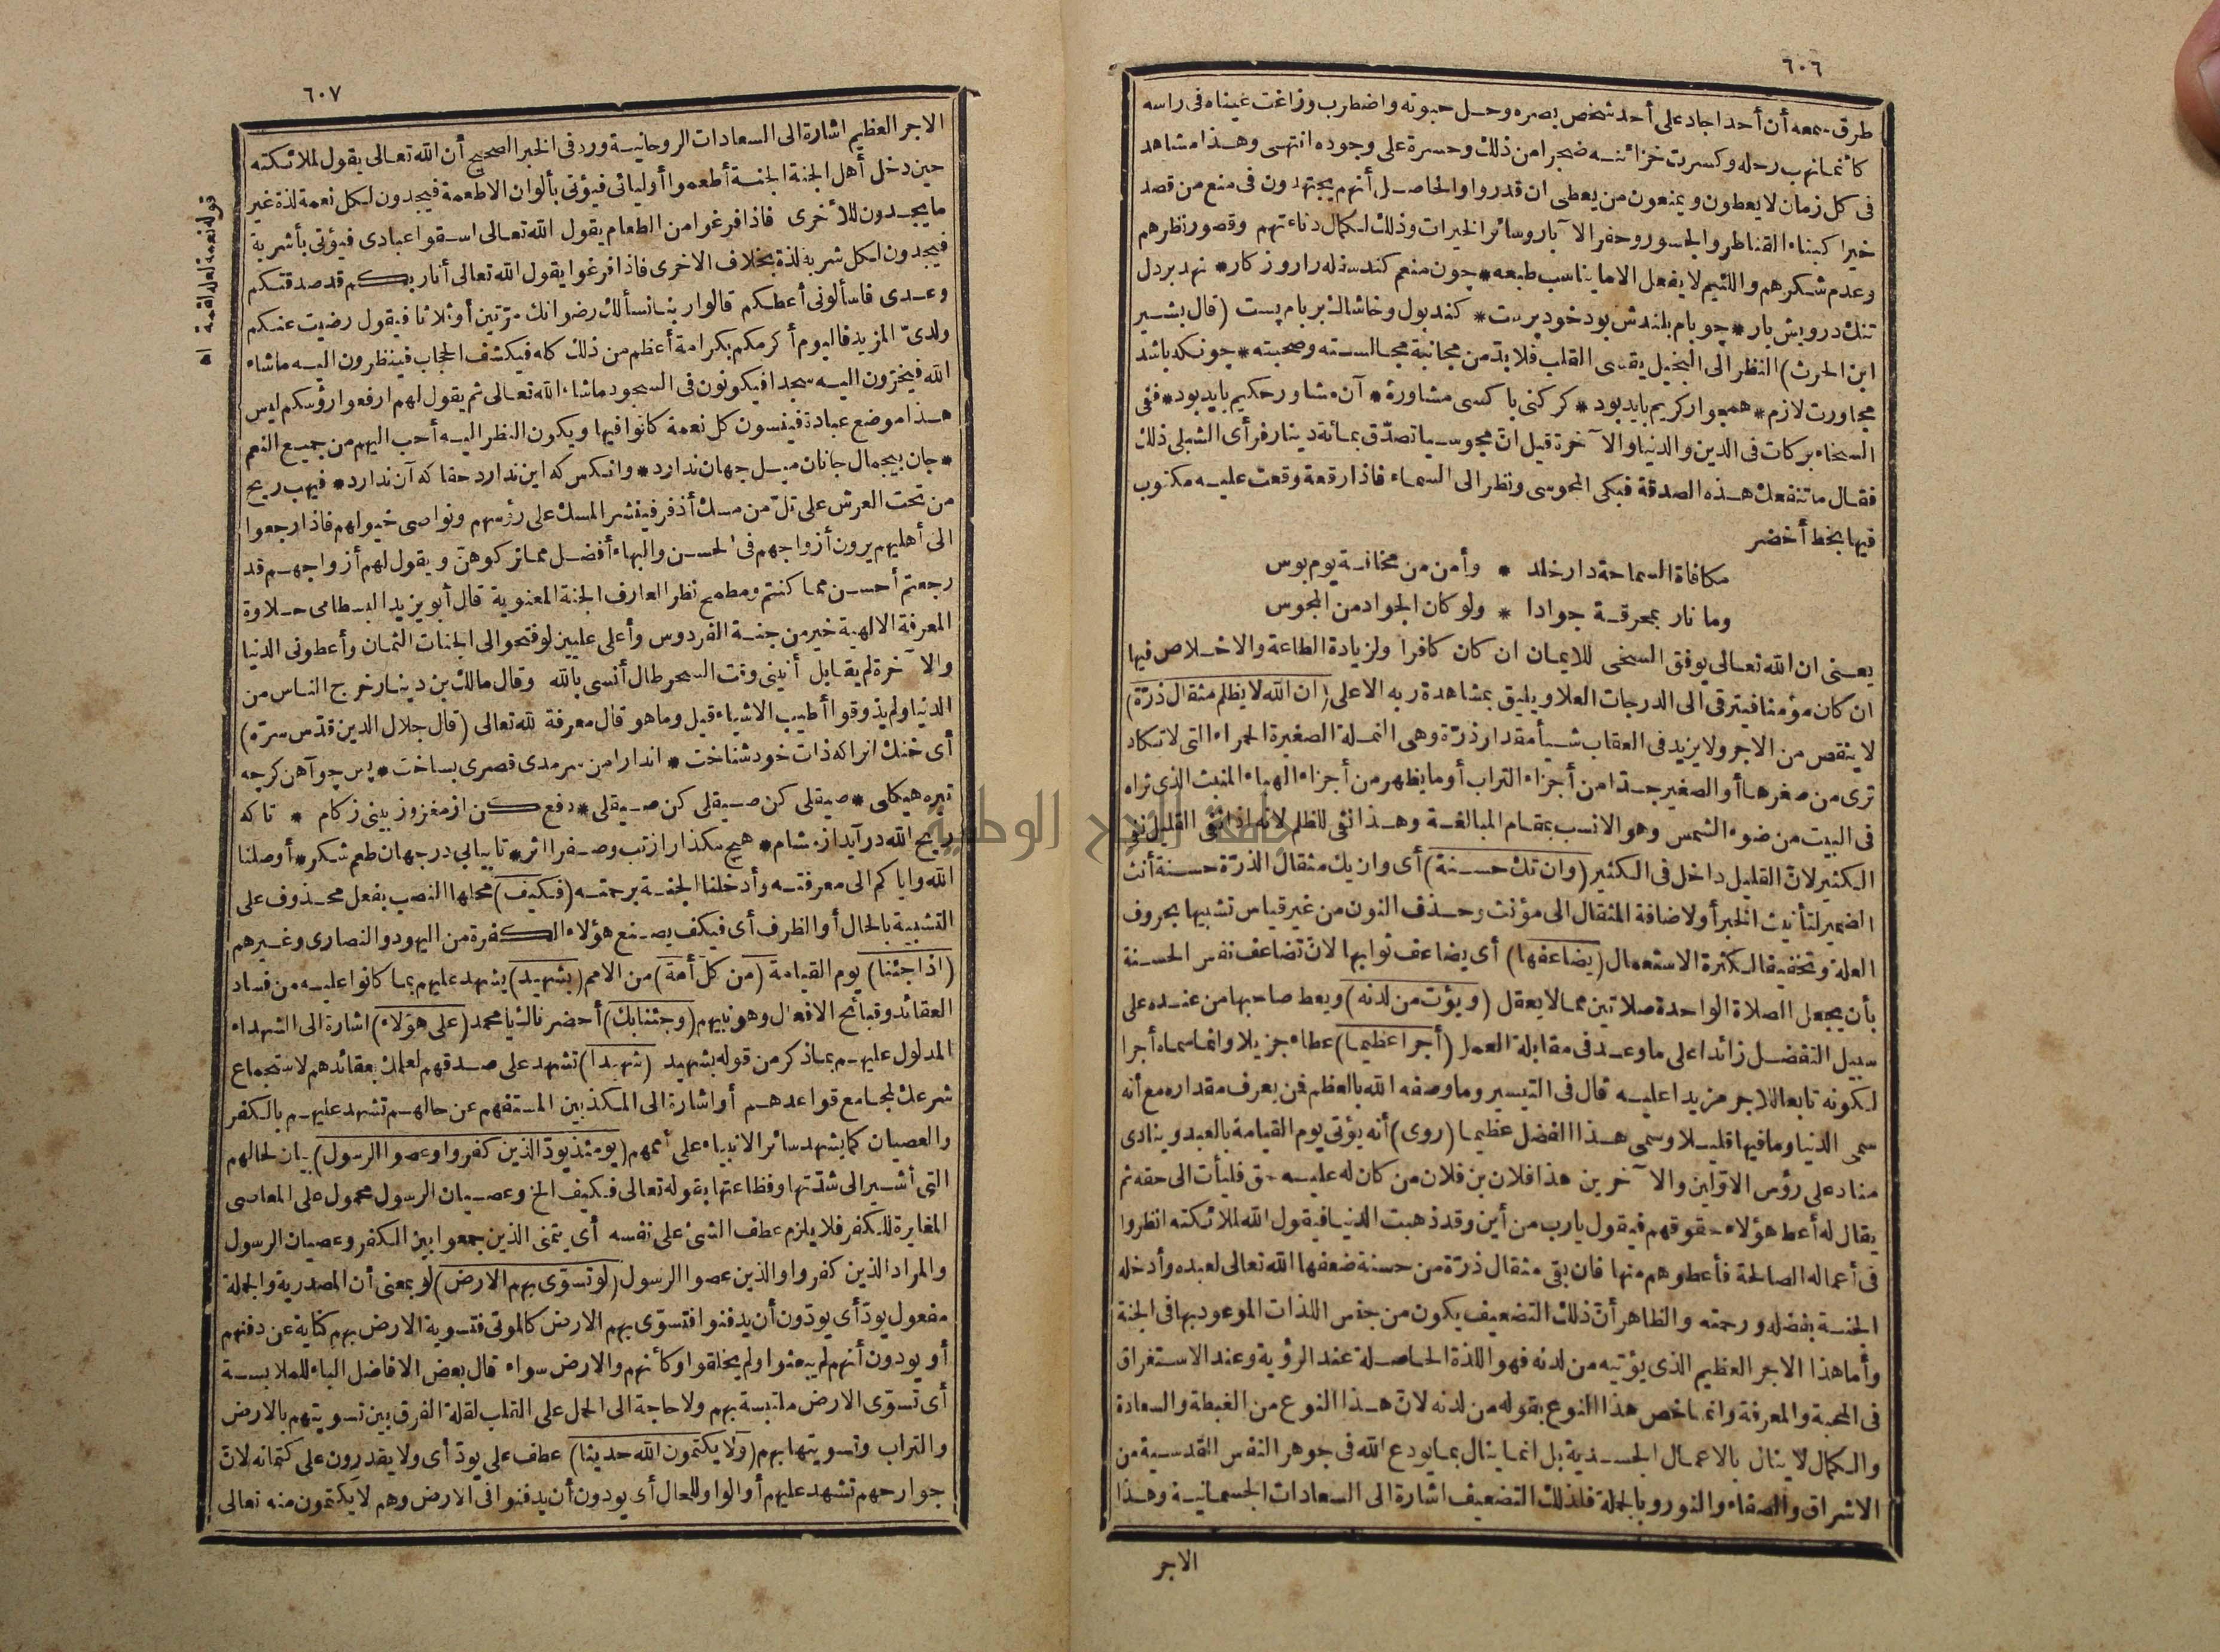 ٦٠٦
طرق سمعه أن أحدا جاد على أحد شخص بصره وحل حبوته واضطرب وزاغت عيناه فى رأسه
كأنما نهب رحله وكسرت خزائنه ضجرا من ذلك وحسرة على وجوده انتهى وهذا مشاهد
فى كل زمان لا يعطون ويمنعون من يعطى ان قدروا والحاصل أنهم يجتهدون فى منع من قصد
خيرا كبناء القناطر والجسور وحفر الآبار وسائر الخيرات وذلك لكمال دناءتهم وقصور نظرهم
وعدم شكرهم واللئيم لا يفعل الا ما يناسب طبعه * چون منعم كند سفله را روزكار * نهد بر دل
تنك درويش بار * چو بام بلندش بود خود پرست * كند بول وخاشاك بر بام پست (قال بشر
ابن الحرث) النظر الى البخيل يقسى القلب فلا بدّ من مجانبة مجالسته وصحبته * چونكه باشد
مجاورت لازم * همجوار كريم بايد بود * كر كنى با كسى مشاورة * آن مشاور حكيم بايد بود * ففى
السخاء بركات فى الدين والدنيا والآخرة قيل انّ مجوسيا تصدّق بمائة دينار فرأى الشبلى ذلك
فقال ما تنفعك هذه الصدقة فبكى المجوسى ونظر الى السماء فاذا رقعة وقعت عليه مكتوب
فيها بخط أخضر
مكافاة السماحة دار خلد * وأمن من مخافة يوم بوس
وما نار بمحرقة جوادا * ولو كان الجواد من المجوس
يعنى ان الله تعالى يوفق السخى للايمان ان كان كافرا ولزيادة الطاعة والاخلاص فيها
ان كان مؤمنا فيترقى الى الدرجات العلا ويليق بمشاهدة ربه الاعلى (ان الله لا يظلم مثقال ذرّة)
لا ينقص من الاجر ولا يزيد فى العقاب شيأ مقدار ذرّة وهى النملة الصغيرة الحمراء التى لا تكاد
ترى من صغرها أو الصغير جدّا من أجزاء التراب أو ما يظهر من أجزاء الهباء المنبث الذى تراه
فى البيت من ضوء الشمس وهو الانسب بمقام المبالغة وهذا نفى للظلم لانه اذا نفى القليل نفى
الكثير لانّ القليل داخل فى الكثير (وان تك حسنة) أى وان يك مثقال الذرّة حسنة أنث
الضمير لتأنيث الخبر أو لاضافة المثقال الى مؤنث وحذف النون من غير قياس تشبيها بحروف
العلة وتخفيفا لكثرة الاستعمال (يضاعفها) أى يضاعف ثوابها لانّ تضاعف نفس الحسنة
بأن يجعل الصلاة الواحدة صلاتين مما لا يعقل (ويؤت من لدنه) ويعط صاحبها من عنده على
سبيل التفضل زائدا على ما وعد فى مقابلة العمل (أجرا عظيما) عطاء جزيلا وانما سماه أجرا
لكونه تابعا للاجر مزيدا عليه قال فى التيسير وما وصفه الله بالعظم فمن يعرف مقداره مع أنه
سمى الدنيا وما فيها قليلا وسمى هذا الفضل عظيما (روى) أنه يؤتى يوم القيامة بالعبد وينادى
مناد على رؤس الاوّلين والآخرين هذا فلان بن فلان من كان له عليه حق فليأت الى حقه ثم
يقال له أعط هؤلاء حقوقهم فيقول يا رب من أين وقد ذهبت الدنيا فيقول الله لملائكته انظروا
فى أعماله الصالحة فأعطوهم منها فان بقى مثقال ذرّة من حسنة ضعفها الله تعالى لعبده وأدخله
الجنة بفضله ورحمته والظاهر أنّ ذلك التضعيف يكون من جنس اللذات الموعود بها فى الجنة
وأما هذا الاجر العظيم الذى يؤتيه من لدنه فهو اللذة الحاصلة عند الرؤية وعند الاستغراق
فى المحبة والمعرفة وانما خص هذا النوع بقوله من لدنه لانّ هذا النوع من الغبطة والسعادة
والكمال لا ينال بالاعمال الجسدية بل انما ينال بما يودع الله فى جوهر النفس القدسية من
الاشراق والصفاء والنور وبالجملة فلذلك التضعيف اشارة الى السعادات الجسمانية وهذا
الاجر
٦٠٧
الاجر العظيم اشارة الى السعادات الروحانية ورد فى الخبر الصحيح أن الله تعالى يقول لملائكته
حين دخل أهل الجنة الجنة أطعموا أوليائى فيؤتى بألوان الاطعمة فيجدون لكل نعمة لذة غير
ما يجدون للأخرى فاذا فرغوا من الطعام يقول الله تعالى اسقوا عبادى فيؤتى بأشربة
فيجدون لكل شربة لذة بخلاف الاخرى فاذا فرغوا يقول الله تعالى أنا ربكم قد صدقتكم
وعدى فاسألونى أعطكم قالوا ربنا نسألك رضوانك مرّتين أو ثلاثا فيقول رضيت عنكم
ولدىّ المزيد فاليوم أكرمكم بكرامة أعظم من ذلك كله فيكشف الحجاب فينظرون اليه ما شاء
الله فيخرّون اليه سجدا فيكونون فى السجود ما شاء الله تعالى ثم يقول لهم ارفعوا رؤسكم ليس
هذا موضع عبادة فينسون كل نعمة كانوا فيها ويكون النظر اليه أحب اليهم من جميع النعم
* جان بيجمال جانان ميل جهان ندارد * وانكس كه اين ندارد حقا كه آن ندارد * فيهب ريح
من تحت العرش على تلّ من مسك أذفر فينثر المسك على رؤسهم ونواصى خيولهم فاذا رجعوا
الى أهليهم يرون أزواجهم فى الحسن والبهاء أفضل مما تركوهنّ ويقول لهم أزواجهم قد
رجعتم أحسن مما كنتم ومطمح نظر العارف الجنة المعنوية قال أبو يزيد البسطامى حلاوة
المعرفة الالهية خير من جنة الفردوس وأعلى عليين لو فتحوا لى الجنات الثمان وأعطونى الدنيا
والآخرة لم يقابل أنينى وقت السحر طال أنسى بالله وقال مالك بن دينار خرج الناس من
الدنيا ولم يذوقوا أطيب الاشياء قيل وما هو قال معرفة لله تعالى (قال جلال الدين قدّس سرّه)
أى خنك انرا كه ذات خود شناخت * اندر امن سرمدى قصرى بساخت * پس چو آهن كرچه
تيره هيكلى * صيقلى كن صيقلى كن صيقلى * دفع كن از مغز وز بينى زكام * تا كه
ريح الله در آيد از مشام * هيچ مكذار از تب وصفرا اثر * تا بيابى در جهان طعم شكر * أوصلنا
الله واياكم الى معرفته وأدخلنا الجنة برحمته (فكيف) محلها النصب بفعل محذوف على
التشبيه بالحال أو الظرف أى فيكف يصنع هؤلاء الكفرة من اليهود والنصارى وغيرهم
(اذا جئنا) يوم القيامة (من كل أمة) من الامم (بشهيد) يشهد عليهم بما كانوا عليه من فساد
العقائد وقبائح الافعال وهو نبيهم (وجئنا بك) أحضرناك يا محمد (على هؤلاء) اشارة الى الشهداء
المدلول عليهم بما ذكر من قوله بشهيد (شهيدا) تشهد على صدقهم لعلمك بعقائدهم لاستجماع
شرعك لمجامع قواعدهم أو اشارة الى المكذبين المستفهم عن حالهم تشهد عليهم بالكفر
والعصيان كما يشهد سائر الانبياء على أممهم (يومئذ يودّ الذين كفروا وعصوا الرسول) بيان لحالهم
التى أشير الى شدّتها وفظاعتها بقوله تعالى فكيف الخ وعصيان الرسول محمول على المعاصى
المغايرة للكفر فلا يلزم عطف الشئ على نفسه أى يتمنى الذين جمعوا بين الكفر وعصيان الرسول
والمراد الذين كفروا والذين عصوا الرسول (لو تسوّى بهم الارض) لو بمعنى أن المصدرية والجملة
مفعول يودّ أى يودّون أن يدفنوا فتسوّى بهم الارض كالموتى فتسوية الارض بهم كناية عن دفنهم
أو يودون أنهم لم يبعثوا ولم يخلقوا وكأنهم والارض سواء قال بعض الافاضل الباء للملابسة
أى تسوّى الارض ملتبسة بهم ولا حاجة الى الحمل على القلب لقلة الفرق بين تسويتهم بالارض
والتراب وتسويتها بهم (ولا يكتمون الله حديثا) عطف على يودّ أى ولا يقدرون على كتمانه لانّ
جوارحهم تشهد عليهم أو الواو للحال أى يودون أن يدفنوا فى الارض وهم لا يكتمون منه تعالى
قوله نعمة لعل لقمة اه